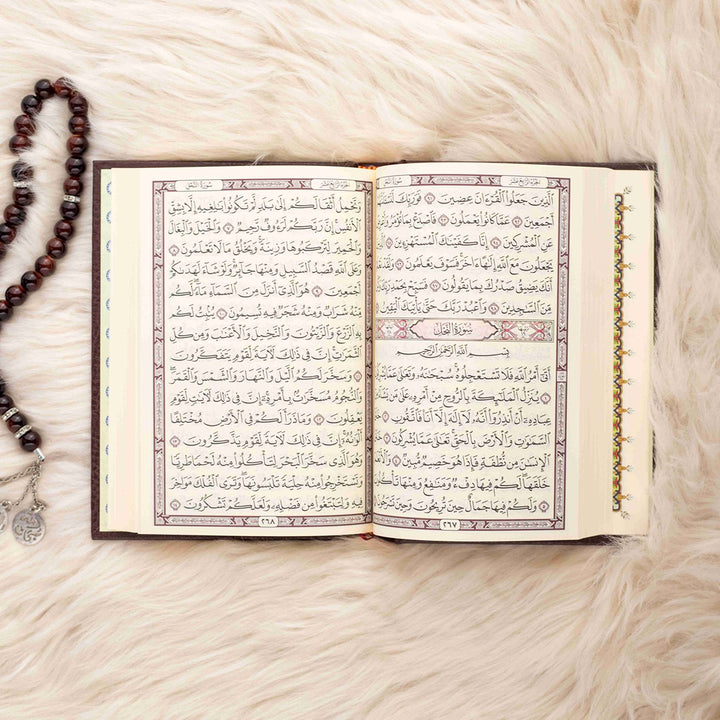 الجزء الرابع عشر سورة النحل
ٱلَّذِينَ جَعَلُوا۟ ٱلْقُرْءَانَ عِضِينَ ٩١ فَوَرَبِّكَ
أَجْمَعِينَ ٩٢ عَمَّا كَانُوا۟ يَعْمَلُونَ ٩٣ فَٱصْدَعْ بِمَا تُؤْمَرُ
عَنِ ٱلْمُشْرِكِينَ ٩٤ إِنَّا كَفَيْنَٰكَ ٱلْمُسْتَهْزِءِينَ ٩٥
يَجْعَلُونَ مَعَ ٱللَّهِ إِلَٰهًا ءَاخَرَ فَسَوْفَ يَعْلَمُونَ ٩٦
أَنَّكَ يَضِيقُ صَدْرُكَ بِمَا يَقُولُونَ ٩٧ فَسَبِّحْ بِحَمْدِ رَبِّكَ
مِّنَ ٱلسَّٰجِدِينَ ٩٨ وَٱعْبُدْ رَبَّكَ حَتَّىٰ يَأْتِيَكَ ٱلْيَقِينُ
سُورَةُ النَّحْلِ
بِسْمِ ٱللَّهِ ٱلرَّحْمَٰنِ ٱلرَّحِيمِ
أَتَىٰٓ أَمْرُ ٱللَّهِ فَلَا تَسْتَعْجِلُوهُ سُبْحَٰنَهُۥ وَتَعَٰلَىٰ عَمَّا
١ يُنَزِّلُ ٱلْمَلَٰٓئِكَةَ بِٱلرُّوحِ مِنْ أَمْرِهِۦ عَلَىٰ مَن
عِبَادِهِۦٓ أَنْ أَنذِرُوٓا۟ أَنَّهُۥ لَآ إِلَٰهَ إِلَّآ أَنَا۠ فَٱتَّقُونِ ٢
ٱلسَّمَٰوَٰتِ وَٱلْأَرْضَ بِٱلْحَقِّ تَعَٰلَىٰ عَمَّا يُشْرِكُونَ ٣
ٱلْإِنسَٰنَ مِن نُّطْفَةٍ فَإِذَا هُوَ خَصِيمٌ مُّبِينٌ ٤
خَلَقَهَا لَكُمْ فِيهَا دِفْءٌ وَمَنَٰفِعُ وَمِنْهَا
وَلَكُمْ فِيهَا جَمَالٌ حِينَ تُرِيحُونَ وَحِينَ
٢٦٧
الجزء الرابع عشر سورة النحل
وَتَحْمِلُ أَثْقَالَكُمْ إِلَىٰ بَلَدٍ لَّمْ تَكُونُوا۟ بَٰلِغِيهِ إِلَّا بِشِقِّ
ٱلْأَنفُسِ إِنَّ رَبَّكُمْ لَرَءُوفٌ رَّحِيمٌ ٧ وَٱلْخَيْلَ وَٱلْبِغَالَ
وَٱلْحَمِيرَ لِتَرْكَبُوهَا وَزِينَةً وَيَخْلُقُ مَا لَا تَعْلَمُونَ ٨
وَعَلَى ٱللَّهِ قَصْدُ ٱلسَّبِيلِ وَمِنْهَا جَآئِرٌ وَلَوْ شَآءَ لَهَدَىٰكُمْ
أَجْمَعِينَ ٩ هُوَ ٱلَّذِىٓ أَنزَلَ مِنَ ٱلسَّمَآءِ مَآءً لَّكُم
مِّنْهُ شَرَابٌ وَمِنْهُ شَجَرٌ فِيهِ تُسِيمُونَ ١٠ يُنۢبِتُ لَكُم
بِهِ ٱلزَّرْعَ وَٱلزَّيْتُونَ وَٱلنَّخِيلَ وَٱلْأَعْنَٰبَ وَمِن كُلِّ
ٱلثَّمَرَٰتِ إِنَّ فِى ذَٰلِكَ لَءَايَةً لِّقَوْمٍ يَتَفَكَّرُونَ
١١ وَسَخَّرَ لَكُمُ ٱلَّيْلَ وَٱلنَّهَارَ وَٱلشَّمْسَ وَٱلْقَمَرَ
وَٱلنُّجُومُ مُسَخَّرَٰتٌۢ بِأَمْرِهِۦٓ إِنَّ فِى ذَٰلِكَ لَءَايَٰتٍ لِّقَوْمٍ
يَعْقِلُونَ ١٢ وَمَا ذَرَأَ لَكُمْ فِى ٱلْأَرْضِ مُخْتَلِفًا
أَلْوَٰنُهُۥٓ إِنَّ فِى ذَٰلِكَ لَءَايَةً لِّقَوْمٍ يَذَّكَّرُونَ ١٣
وَهُوَ ٱلَّذِى سَخَّرَ ٱلْبَحْرَ لِتَأْكُلُوا۟ مِنْهُ لَحْمًا طَرِيًّا
وَتَسْتَخْرِجُوا۟ مِنْهُ حِلْيَةً تَلْبَسُونَهَا وَتَرَى ٱلْفُلْكَ مَوَاخِرَ
فِيهِ وَلِتَبْتَغُوا۟ مِن فَضْلِهِۦ وَلَعَلَّكُمْ تَشْكُرُونَ ١٤
٢٦٨